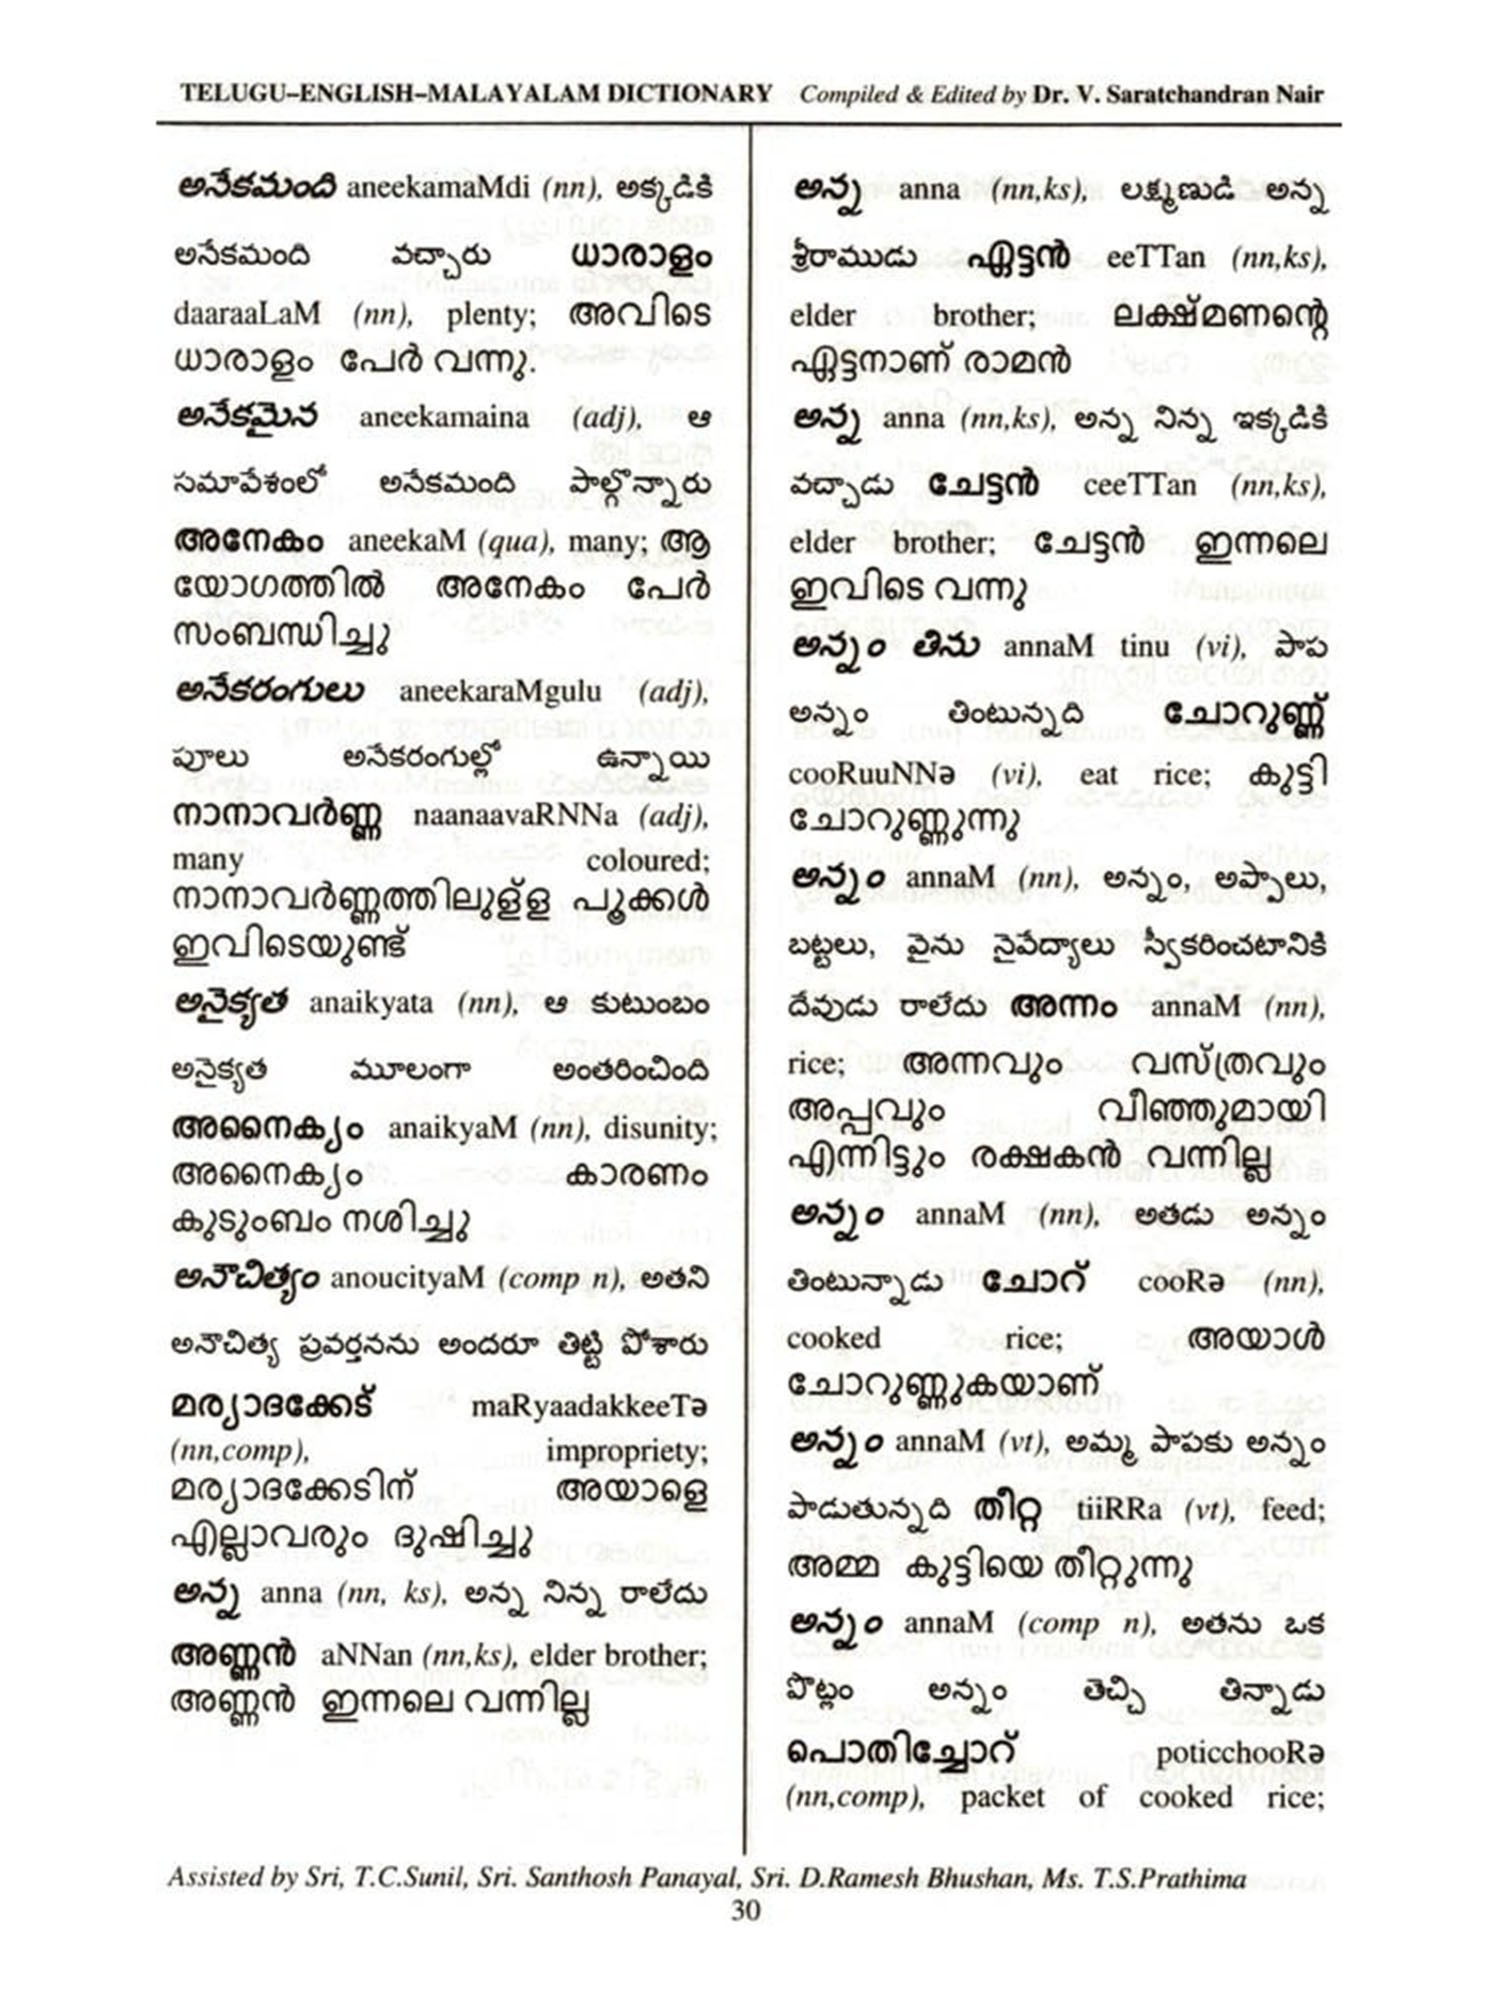 TELUGU–ENGLISH–MALAYALAM DICTIONARY Compiled & Edited by Dr. V. Saratchandran Nair
అనేకమంది aneekamaMdi (nn), అక్కడికి
అనేకమంది వచ్చారు ധാരാളം
daaraaLaM (nn), plenty; അവിടെ
ധാരാളം പേർ വന്നു.
అనేకమైన aneekamaina (adj), ఆ
సమావేశంలో అనేకమంది పాల్గొన్నారు
അനേകം aneekaM (qua), many; ആ
യോഗത്തിൽ അനേകം പേർ
സംബന്ധിച്ചു
అనేకరంగులు aneekaraMgulu (adj),
పూలు అనేకరంగుల్లో ఉన్నాయి
നാനാവർണ്ണ naanaavaRNNa (adj),
many coloured;
നാനാവർണ്ണത്തിലുള്ള പൂക്കൾ
ഇവിടെയുണ്ട്
అనైక్యత anaikyata (nn), ఆ కుటుంబం
అనైక్యత మూలంగా అంతరించింది
അനൈക്യം anaikyaM (nn), disunity;
അനൈക്യം കാരണം
കുടുംബം നശിച്ചു
అనౌచిత్యం anoucityaM (comp n), అతని
అనౌచిత్య ప్రవర్తనను అందరూ తిట్టి పోశారు
മര്യാദക്കേട് maRyaadakkeeTə
(nn,comp), impropriety;
മര്യാദക്കേടിന് അയാളെ
എല്ലാവരും ദുഷിച്ചു
అన్న anna (nn, ks), అన్న నిన్న రాలేదు
അണ്ണൻ aNNan (nn,ks), elder brother;
അണ്ണൻ ഇന്നലെ വന്നില്ല
అన్న anna (nn,ks), లక్ష్మణుడి అన్న
శ్రీరాముడు ഏട്ടൻ eeTTan (nn,ks),
elder brother; ലക്ഷ്മണന്റെ
ഏട്ടനാണ് രാമൻ
అన్న anna (nn,ks), అన్న నిన్న ఇక్కడికి
వచ్చాడు ചേട്ടൻ ceeTTan (nn,ks),
elder brother; ചേട്ടൻ ഇന്നലെ
ഇവിടെ വന്നു
అన్నం తిను annaM tinu (vi), పాప
అన్నం తింటున్నది ചോറുണ്ണ്
cooRuuNNə (vi), eat rice; കുട്ടി
ചോറുണ്ണുന്നു
అన్నం annaM (nn), అన్నం, అప్పాలు,
బట్టలు, వైను నైవేద్యాలు స్వీకరించటానికి
దేవుడు రాలేదు അന്നം annaM (nn),
rice; അന്നവും വസ്ത്രവും
അപ്പവും വീഞ്ഞുമായി
എന്നിട്ടും രക്ഷകൻ വന്നില്ല
అన్నం annaM (nn), అతడు అన్నం
తింటున్నాడు ചോറ് cooRə (nn),
cooked rice; അയാൾ
ചോറുണ്ണുകയാണ്
అన్నం annaM (vt), అమ్మ పాపకు అన్నం
పాడుతున్నది തീറ്റ tiiRRa (vt), feed;
അമ്മ കുട്ടിയെ തീറ്റുന്നു
అన్నం annaM (comp n), అతను ఒక
పొట్లం అన్నం తెచ్చి తిన్నాడు
പൊതിച്ചോറ് poticchooRə
(nn,comp), packet of cooked rice;
Assisted by Sri, T.C.Sunil, Sri. Santhosh Panayal, Sri. D.Ramesh Bhushan, Ms. T.S.Prathima
30